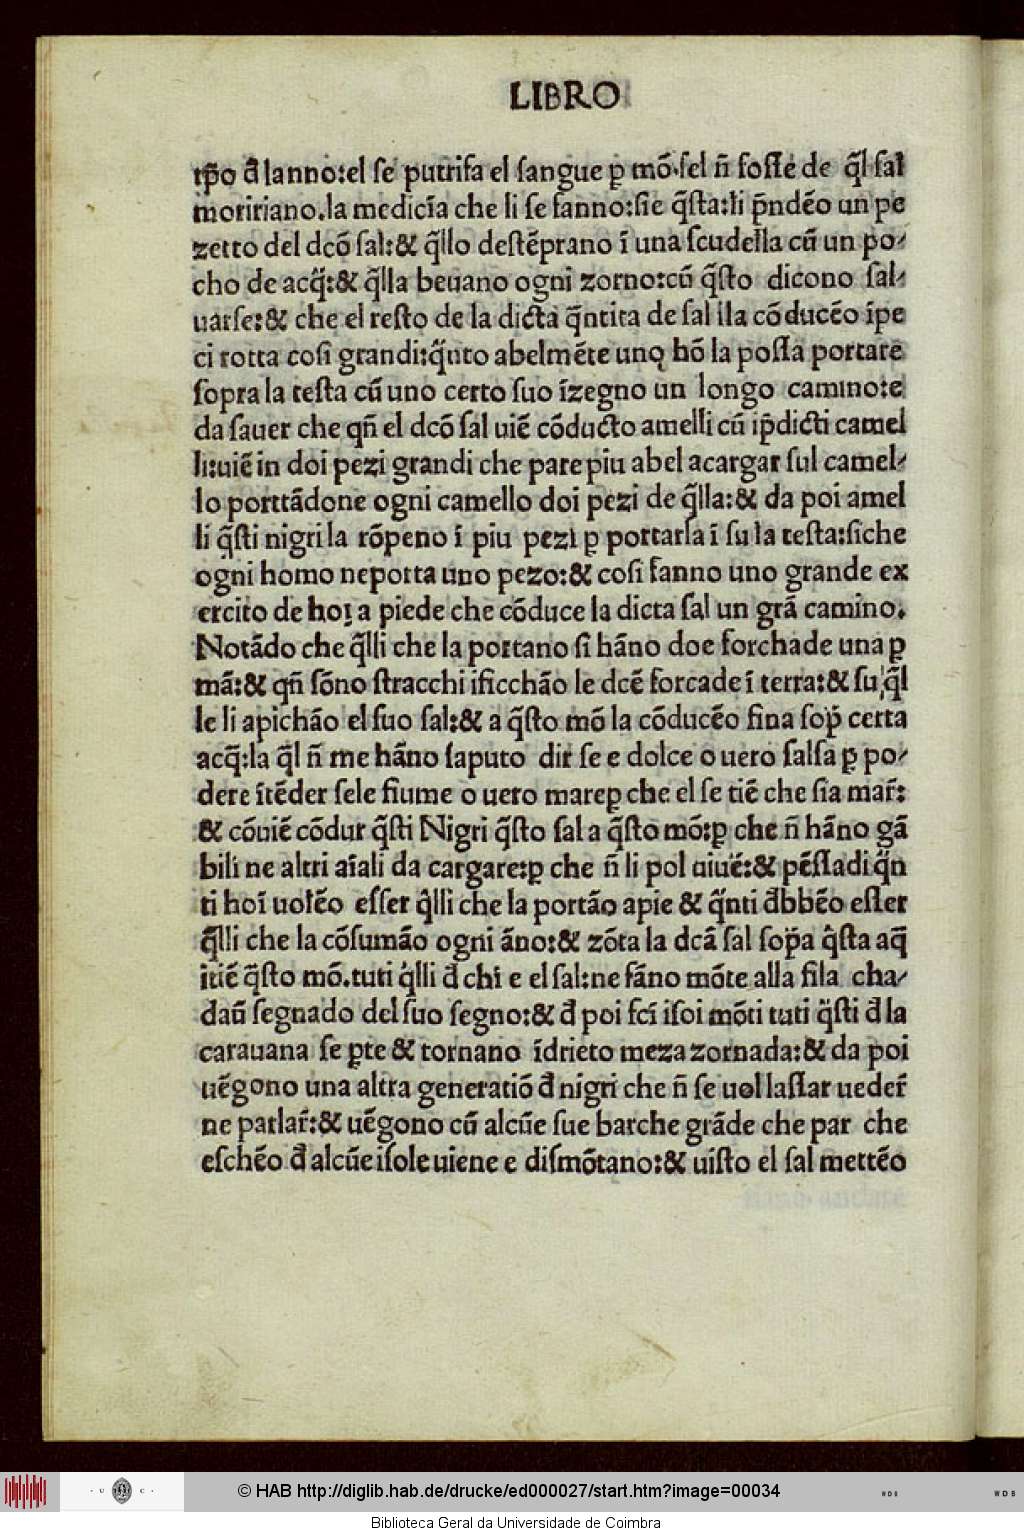 LIBRO
tp̄o đ lanno:el se putrifa el sangue ꝑ mō.sel ñ fosse de q̄l sal
moririano.la medicīa che li se fanno:sie q̄sta:li p̄ndēo un pe
zetto del dcō sal:& q̄llo destēprano ī una scudella cū un po-
cho de acq̄:& q̄lla beuano ogni zorno:cū q̄sto dicono sal-
uarse:& che el resto de la dicta q̄ntita de sal ila cōducēo īpe
ci rotta cosi grandi:q̄nto abelmēte uno hō la possa portare
sopra la testa cū uno certo suo īzegno un longo camino:e
da sauer che qñ el dcō sal uiē cōducto amelli cū ip̄dicti camel
li:uiē in doi pezi grandi che pare piu abel acargar sul camel-
lo porttādone ogni camello doi pezi de q̄lla:& da poi amel
li q̄sti nigri la rōpeno ī piu pezi ꝑ portarla ī su la testa:siche
ogni homo neporta uno pezo:& cosi fanno uno grande ex
ercito de hoī a piede che cōduce la dicta sal un grā camino.
Notādo che q̄lli che la portano si hāno doe forchade una ꝑ
mā:& qñ sōno stracchi ificchāo le dcē forcade ī terra:& su q̄l
le li apichāo el suo sal:& a q̄sto mō la cōducēo fina sop̄ certa
acq̄:la q̄l ñ me hāno saputo dir se e dolce o uero salsa ꝑ po-
dere ītēder sele fiume o uero mareꝑ che el se tiē che sia mar̄:
& cōuiē cōdur q̄sti Nigri q̄sto sal a q̄sto mō:ꝑ che ñ hāno gā
bili ne altri aīali da cargare:ꝑ che ñ li pol uiuē:& pēsadi q̄n
ti hoī uolēo esser q̄lli che la portāo apie & q̄nti đbbēo esser
q̄lli che la cōsumāo ogni āno:& zōta la dcā sal sop̄a q̄sta aq̄
itiē q̄sto mō.tuti q̄lli đ chi e el sal:ne fāno mōte alla fila cha-
daū segnado del suo segno:& đ poi fcī isoi mōti tuti q̄sti đ la
carauana se ꝑte & tornano īdrieto meza zornada:& da poi
uēgono una altra generatiō đ nigri che ñ se uol lassar ueder̄
ne parlar̄:& uēgono cū alcūe sue barche grāde che par che
eschēo đ alcūe isole uiene e dismōtano:& uisto el sal mettēo
© HAB http://diglib.hab.de/drucke/ed000027/start.htm?image=00034
Biblioteca Geral da Universidade de Coimbra